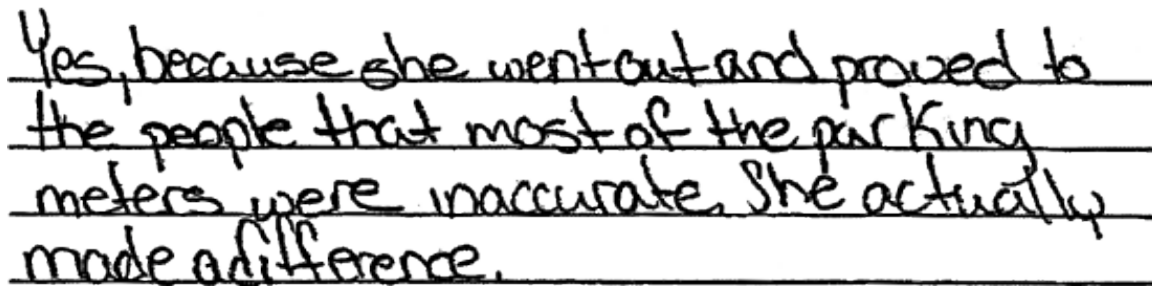 Yes, because she went out and proved to
the people that most of the parking
meters were inaccurate. She actually
made a difference.